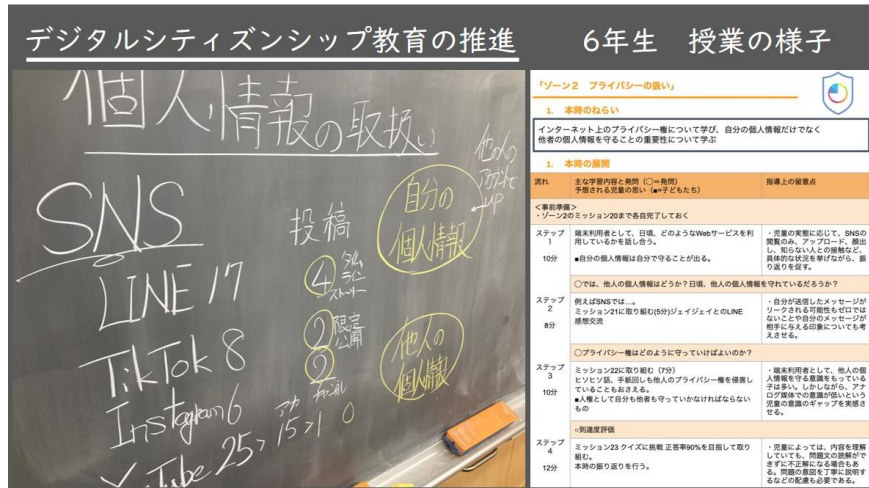 デジタルシティズンシップ教育の推進　　6年生　授業の様子
個人情報の取扱い
SNS
LINE 17
TikTok 8
Instagram 6
YouTube 25 > 15 > 1
アカ
チャンネル
0
投稿
④ タイムラインストーリー
② 限定公開
②
自分の個人情報
他の人のアカウントでUP
他人の個人情報
「ゾーン2　プライバシーの扱い」
1.　本時のねらい
インターネット上のプライバシー権について学び、自分の個人情報だけでなく
他者の個人情報を守ることの重要性について学ぶ
1.　本時の展開
流れ
主な学習内容と発問（○＝発問）
予想される児童の思い（■=子どもたち）
指導上の留意点
＜事前準備＞
・ゾーン2のミッション20まで各自完了しておく
ステップ
1
10分
端末利用者として、日頃、どのようなWebサービスを利
用しているかを話し合う。
■自分の個人情報は自分で守ることが出る。
・児童の実態に応じて、SNSの
閲覧のみ、アップロード、顔出
し、知らない人との接触など、
具体的な状況を挙げながら、振
り返りを促す。
○では、他人の個人情報はどうか？日頃、他人の個人情報を守れているだろうか？
ステップ
2
8分
例えばSNSでは…。
ミッション21に取り組む(5分)ジェイジェイとのLINE
感想交流
・自分が送信したメッセージが
リークされる可能性もゼロでは
ないことや自分のメッセージが
相手に与える印象についても考
えさせる。
○プライバシー権はどのように守っていけばよいのか？
ステップ
3
10分
ミッション22に取り組む（7分）
ヒソヒソ話、手紙回しも他人のプライバシー権を侵害し
ていることもおさえる。
■人権として自分も他者も守っていかなければならない
もの
・端末利用者として、他人の個
人情報を守る意識をもっている
子は多い。しかしながら、アナ
ログ媒体での意識が低いという
児童の意識のギャップを実感さ
せる。
○到達度評価
ステップ
4
12分
ミッション23 クイズに挑戦 正答率90%を目指して取り
組む。
本時の振り返りを行う。
・児童によっては、内容を理解
していても、問題文の読解がで
きずに不正解になる場合もあ
る。問題の意図を丁寧に説明す
るなどの配慮も必要である。